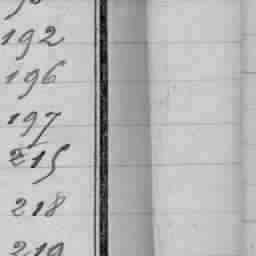 192
196
197
215
218
219